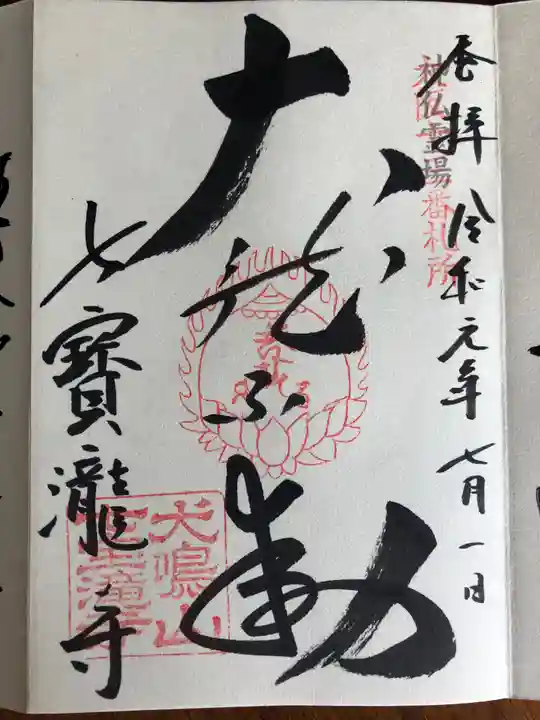 奉拝 令和元年七月一日
神仏霊場番札所
大龍不動
七寶瀧寺
犬鳴山
七宝滝寺